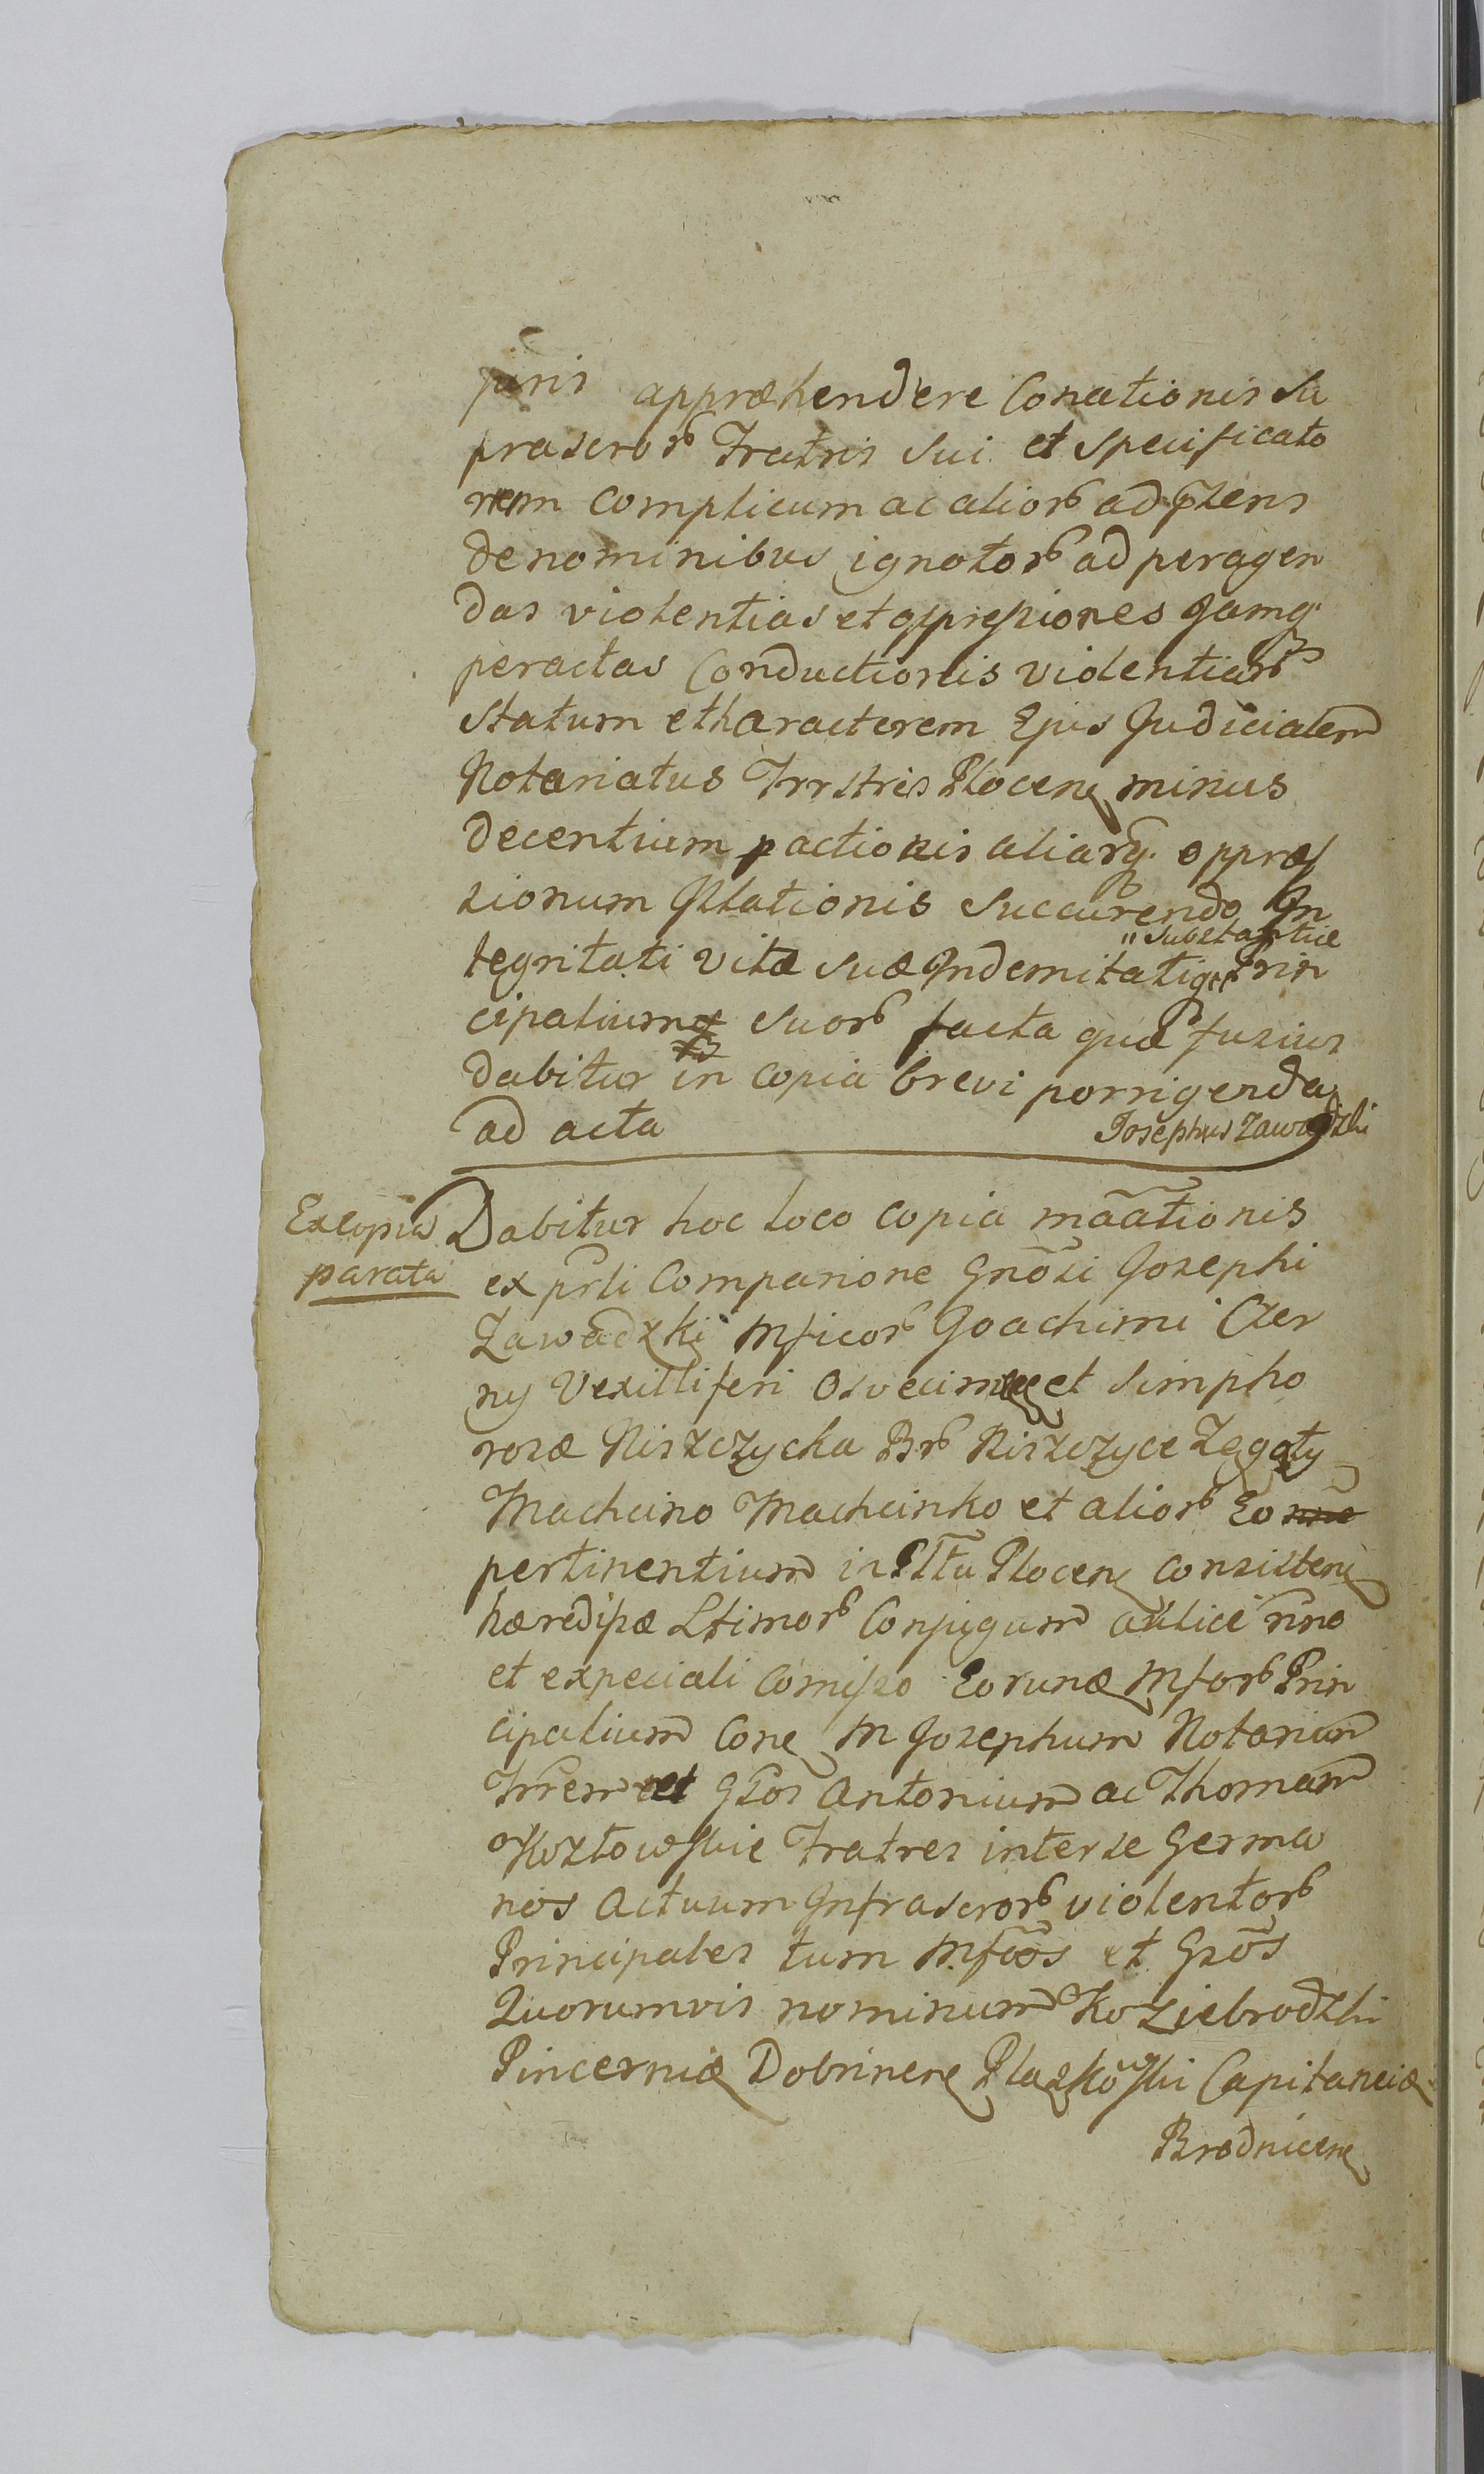 juris appræhendere Conationis Su
prascrors Fratris Sui et Specificato
rum Complicum ac aliors ad p̃sens
de nominibus ignotors ad peragen
das violentias et oppressiones Jamq
peractas Conductionis violentiars
Statum et haracterem Ejus Judicialem
Notariatus Trrstris Plocen minus
decentium pactionis aliarq oppræs
sionum Illationis Succurendo In
"Substantiæ
tegritati vitæ suæ Indemitatiqe Prin
cipalium suors facta quæ fusius
dabitur in copia brevi porrigenda
ad acta
Josephus Zawadzki
Ex copia
parata
Dabitur hoc loco copia mãationis
ex prli Comparione Gnõsi Josephi
Zawadzki Mficors Joachimi Czer
ny Vexilliferi Osvecimen et Simpho
rosæ Niszczycka Brs Niszczyce Zagoty
Machcino Machcinko et aliors Eo nne
pertinentium in Plltu Plocen Consisten
hæredipæ Ltimors Conjugum aulici nno
et expeciali Comisso Eorunde Mfors Prin
cipalium Cone M Josephum Notarium
Trrem et Gsos Antonium ac Thomam
Kozłowskie Fratres inter se Germa
nos Actuum Infrascrors violentors
Principales tum Mfcos et Gsõs
Quorumvis nominum Koziebrodzki
Pincernia Dobrinen Plaskowski Capitaneia
Brodnicen